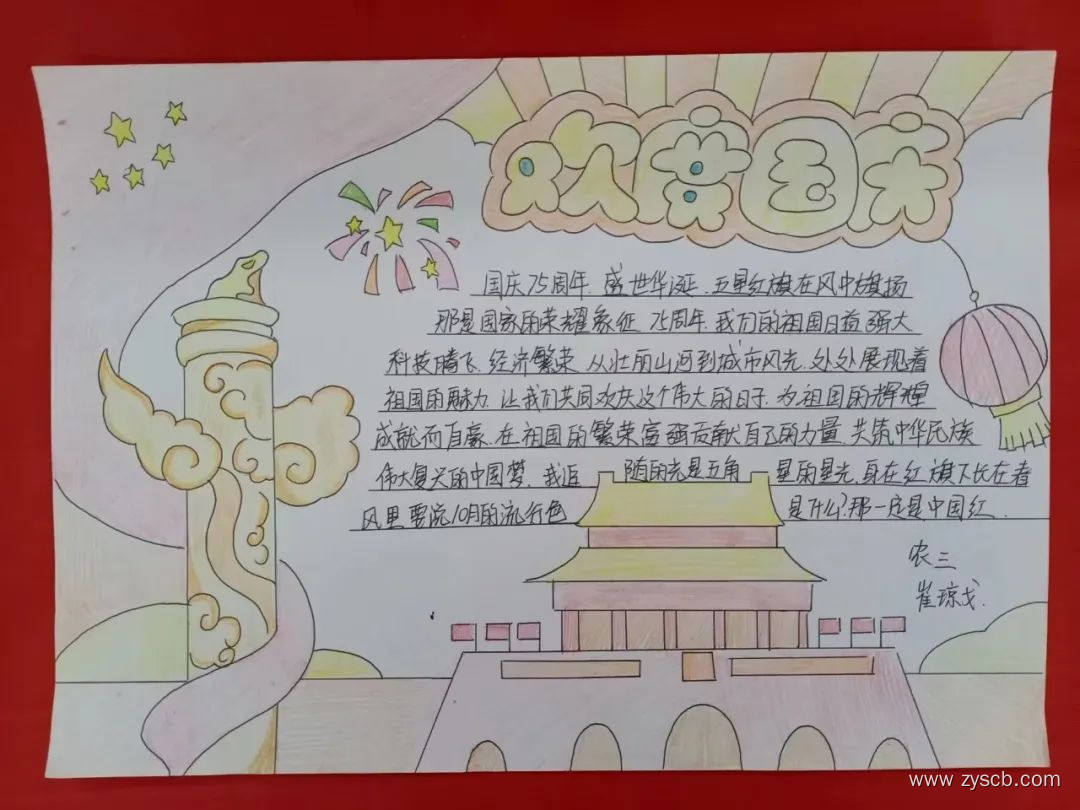 欢度国庆
国庆75周年.盛世华诞.五星红旗在风中旗扬
那是国家的荣耀象征.75周年.我们的祖国日益强大
科技腾飞.经济繁荣.从壮丽山河到城市风光.处处展现着
祖国的魅力.让我们共同欢庆这个伟大的日子.为祖国的辉煌
成就而自豪.在祖国的繁荣富强贡献自己的力量.共筑中华民族
伟大复兴的中国梦.我追随的光是五角星的星光.身在红旗下长在春
风里要说10月的流行色是什么?那一定是中国红.
农三
崔琼戈.
www.zyscb.com